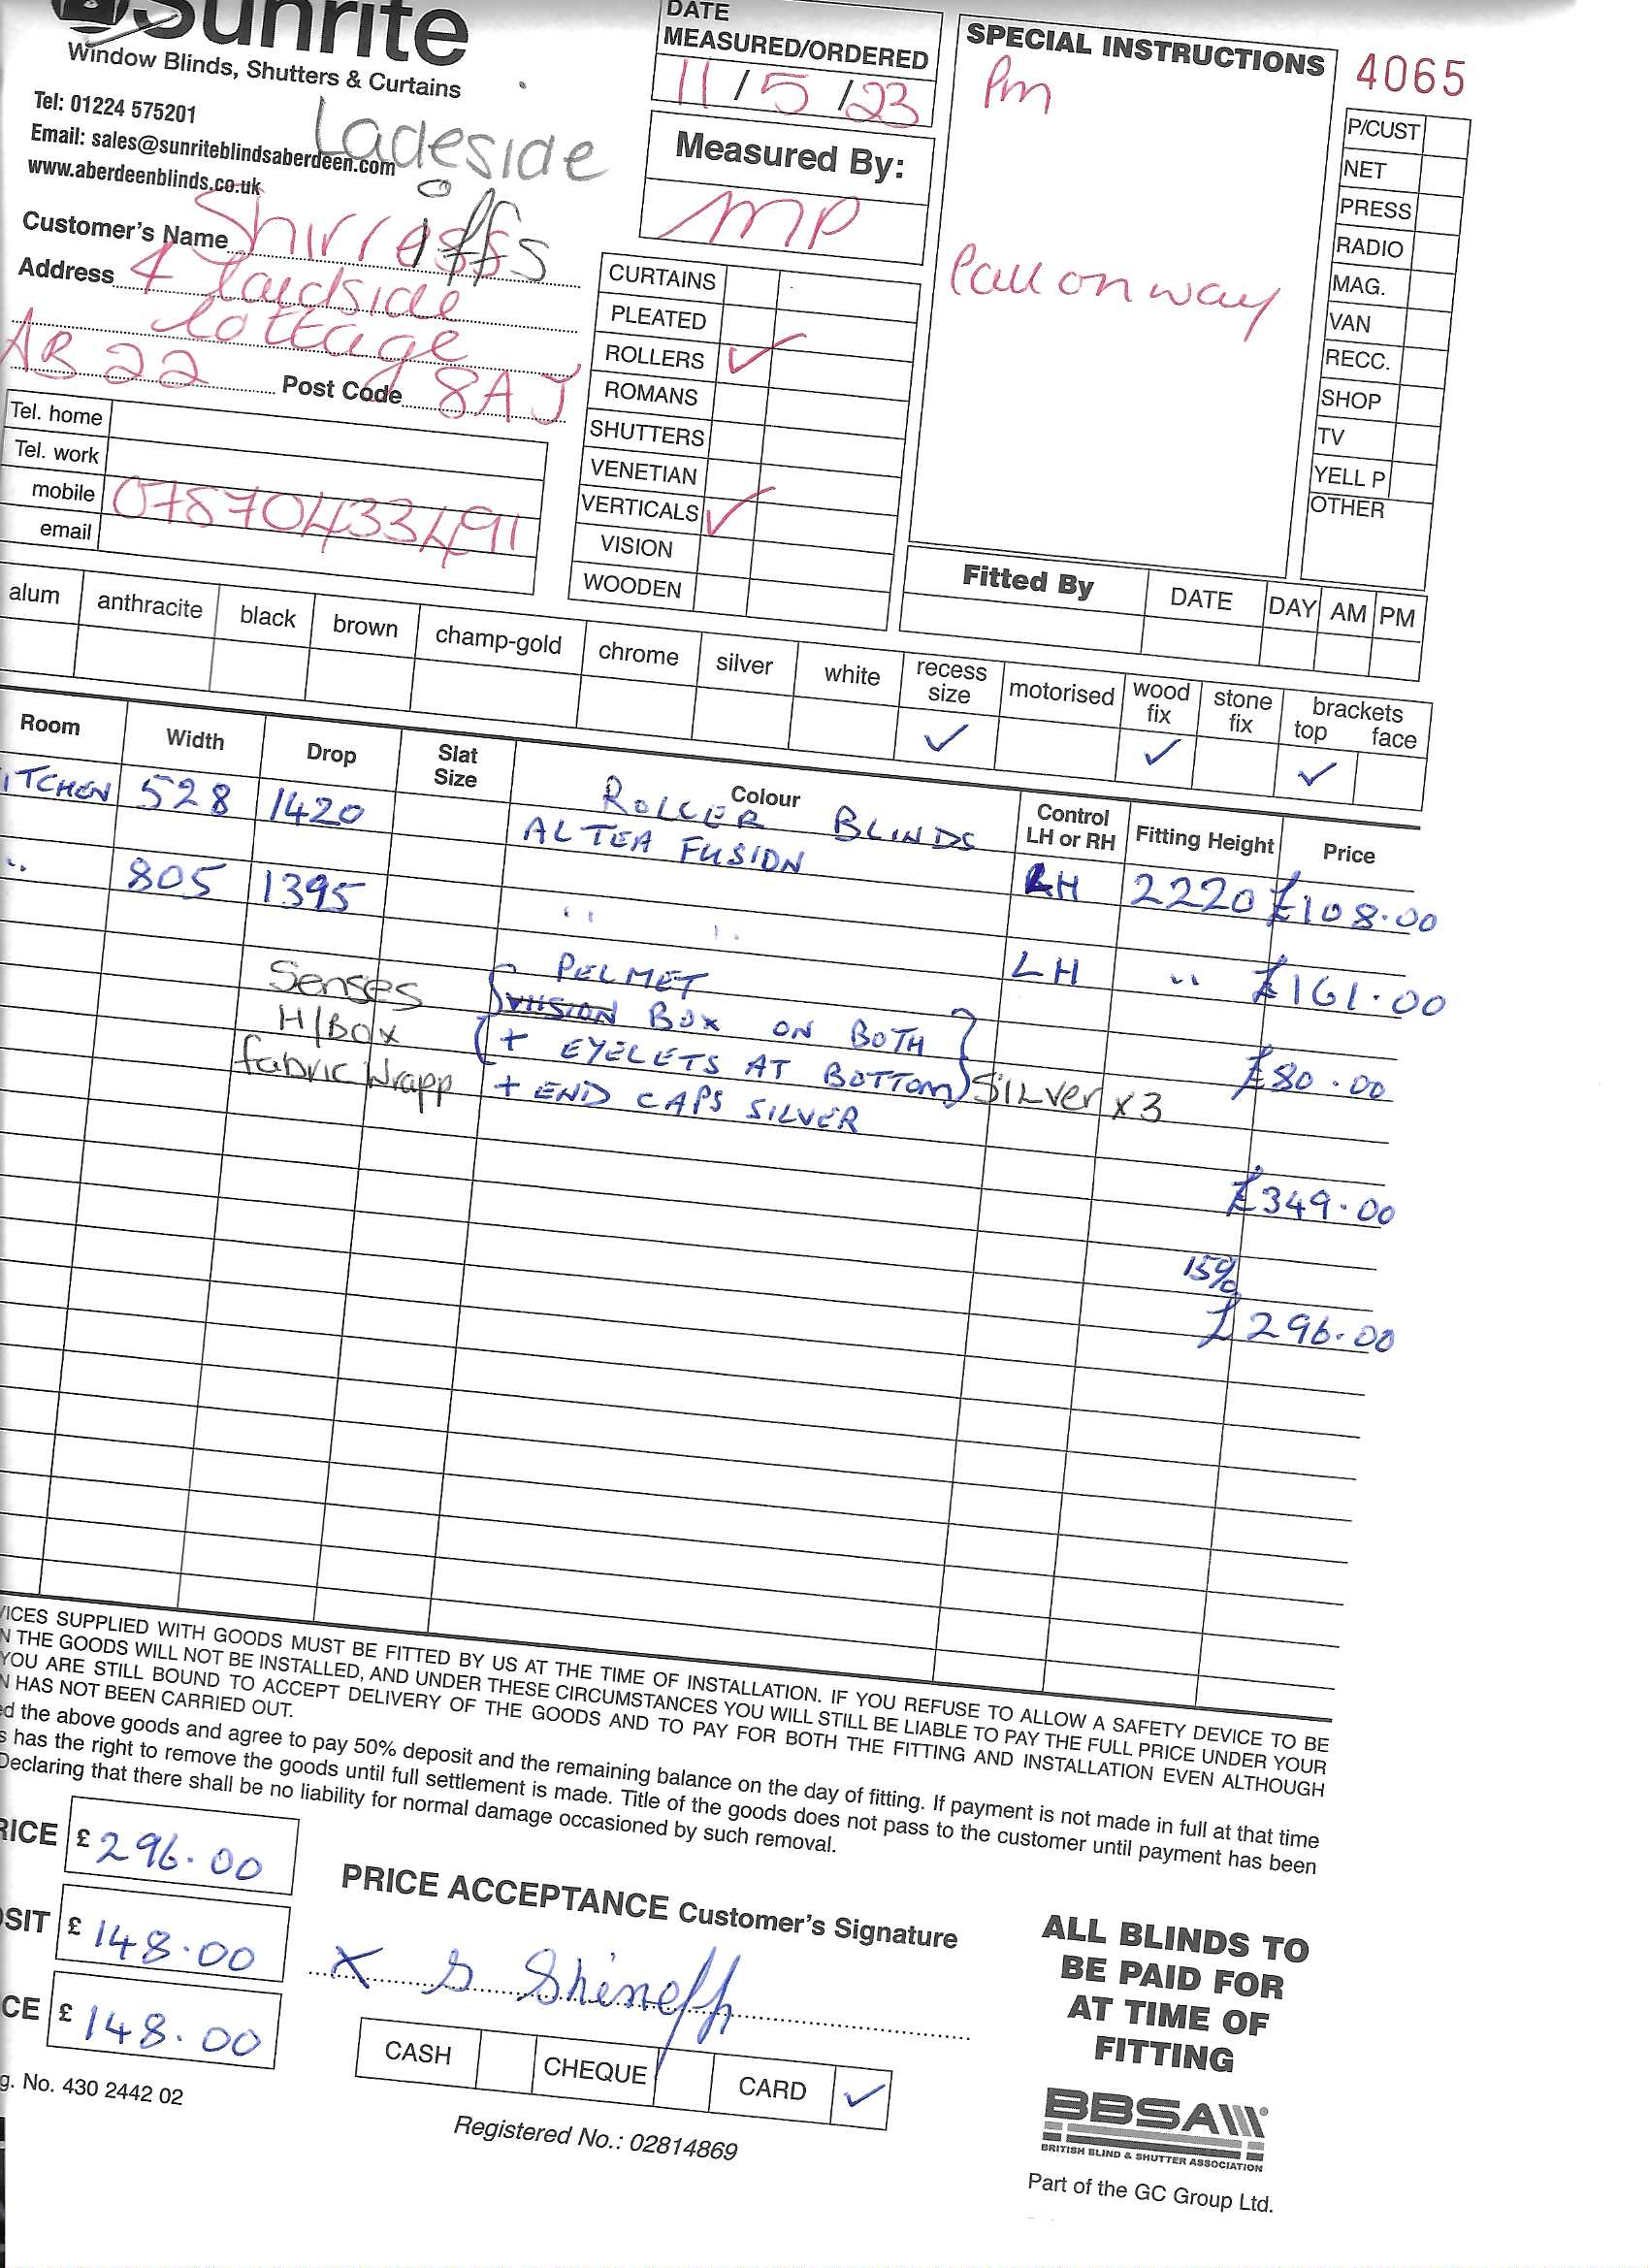 Sunrite
Window Blinds, Shutters & Curtains
Tel: 01224 575201
Email: sales@sunriteblindsaberdeen.com
www.aberdeenblinds.co.uk
Ladeside
Customer's Name Shirreffs iffs
Address 4 Laidside
Cottage
AB 22 Post Code 8AJ
Tel. home
Tel. work
mobile 07870433491
email
DATE
MEASURED/ORDERED
11/5/23
Measured By:
MP
CURTAINS
PLEATED
ROLLERS ✓
ROMANS
SHUTTERS
VENETIAN
VERTICALS ✓
VISION
WOODEN
SPECIAL INSTRUCTIONS
Pm
Call on way
4065
P/CUST
NET
PRESS
RADIO
MAG.
VAN
RECC.
SHOP
TV
YELL P
OTHER
Fitted By DATE DAY AM PM
alum anthracite black brown champ-gold chrome silver white recess size ✓ motorised wood fix ✓ stone fix brackets top ✓ face
Room Width Drop Slat Size Colour Control LH or RH Fitting Height Price
ROLLER BLINDS
ITCHEN 528 1420 ALTEA FUSION LH 2220 £108.00
" 805 1395 " " LH " £161.00
Senses PELMET
H/Box BOX ON BOTH
fabric Wrapp + EYELETS AT BOTTOM SILVER x 3 £80.00
+ END CAPS SILVER
£349.00
15%
£296.00
VICES SUPPLIED WITH GOODS MUST BE FITTED BY US AT THE TIME OF INSTALLATION. IF YOU REFUSE TO ALLOW A SAFETY DEVICE TO BE
N THE GOODS WILL NOT BE INSTALLED, AND UNDER THESE CIRCUMSTANCES YOU WILL STILL BE LIABLE TO PAY THE FULL PRICE UNDER YOUR
YOU ARE STILL BOUND TO ACCEPT DELIVERY OF THE GOODS AND TO PAY FOR BOTH THE FITTING AND INSTALLATION EVEN ALTHOUGH
N HAS NOT BEEN CARRIED OUT.
ed the above goods and agree to pay 50% deposit and the remaining balance on the day of fitting. If payment is not made in full at that time
s has the right to remove the goods until full settlement is made. Title of the goods does not pass to the customer until payment has been
Declaring that there shall be no liability for normal damage occasioned by such removal.
RICE £ 296.00
OSIT £ 148.00
CE £ 148.00
PRICE ACCEPTANCE Customer's Signature
x S Shirreffs
CASH CHEQUE CARD ✓
g. No. 430 2442 02
Registered No.: 02814869
ALL BLINDS TO
BE PAID FOR
AT TIME OF
FITTING
BBSA
BRITISH BLIND & SHUTTER ASSOCIATION
Part of the GC Group Ltd.